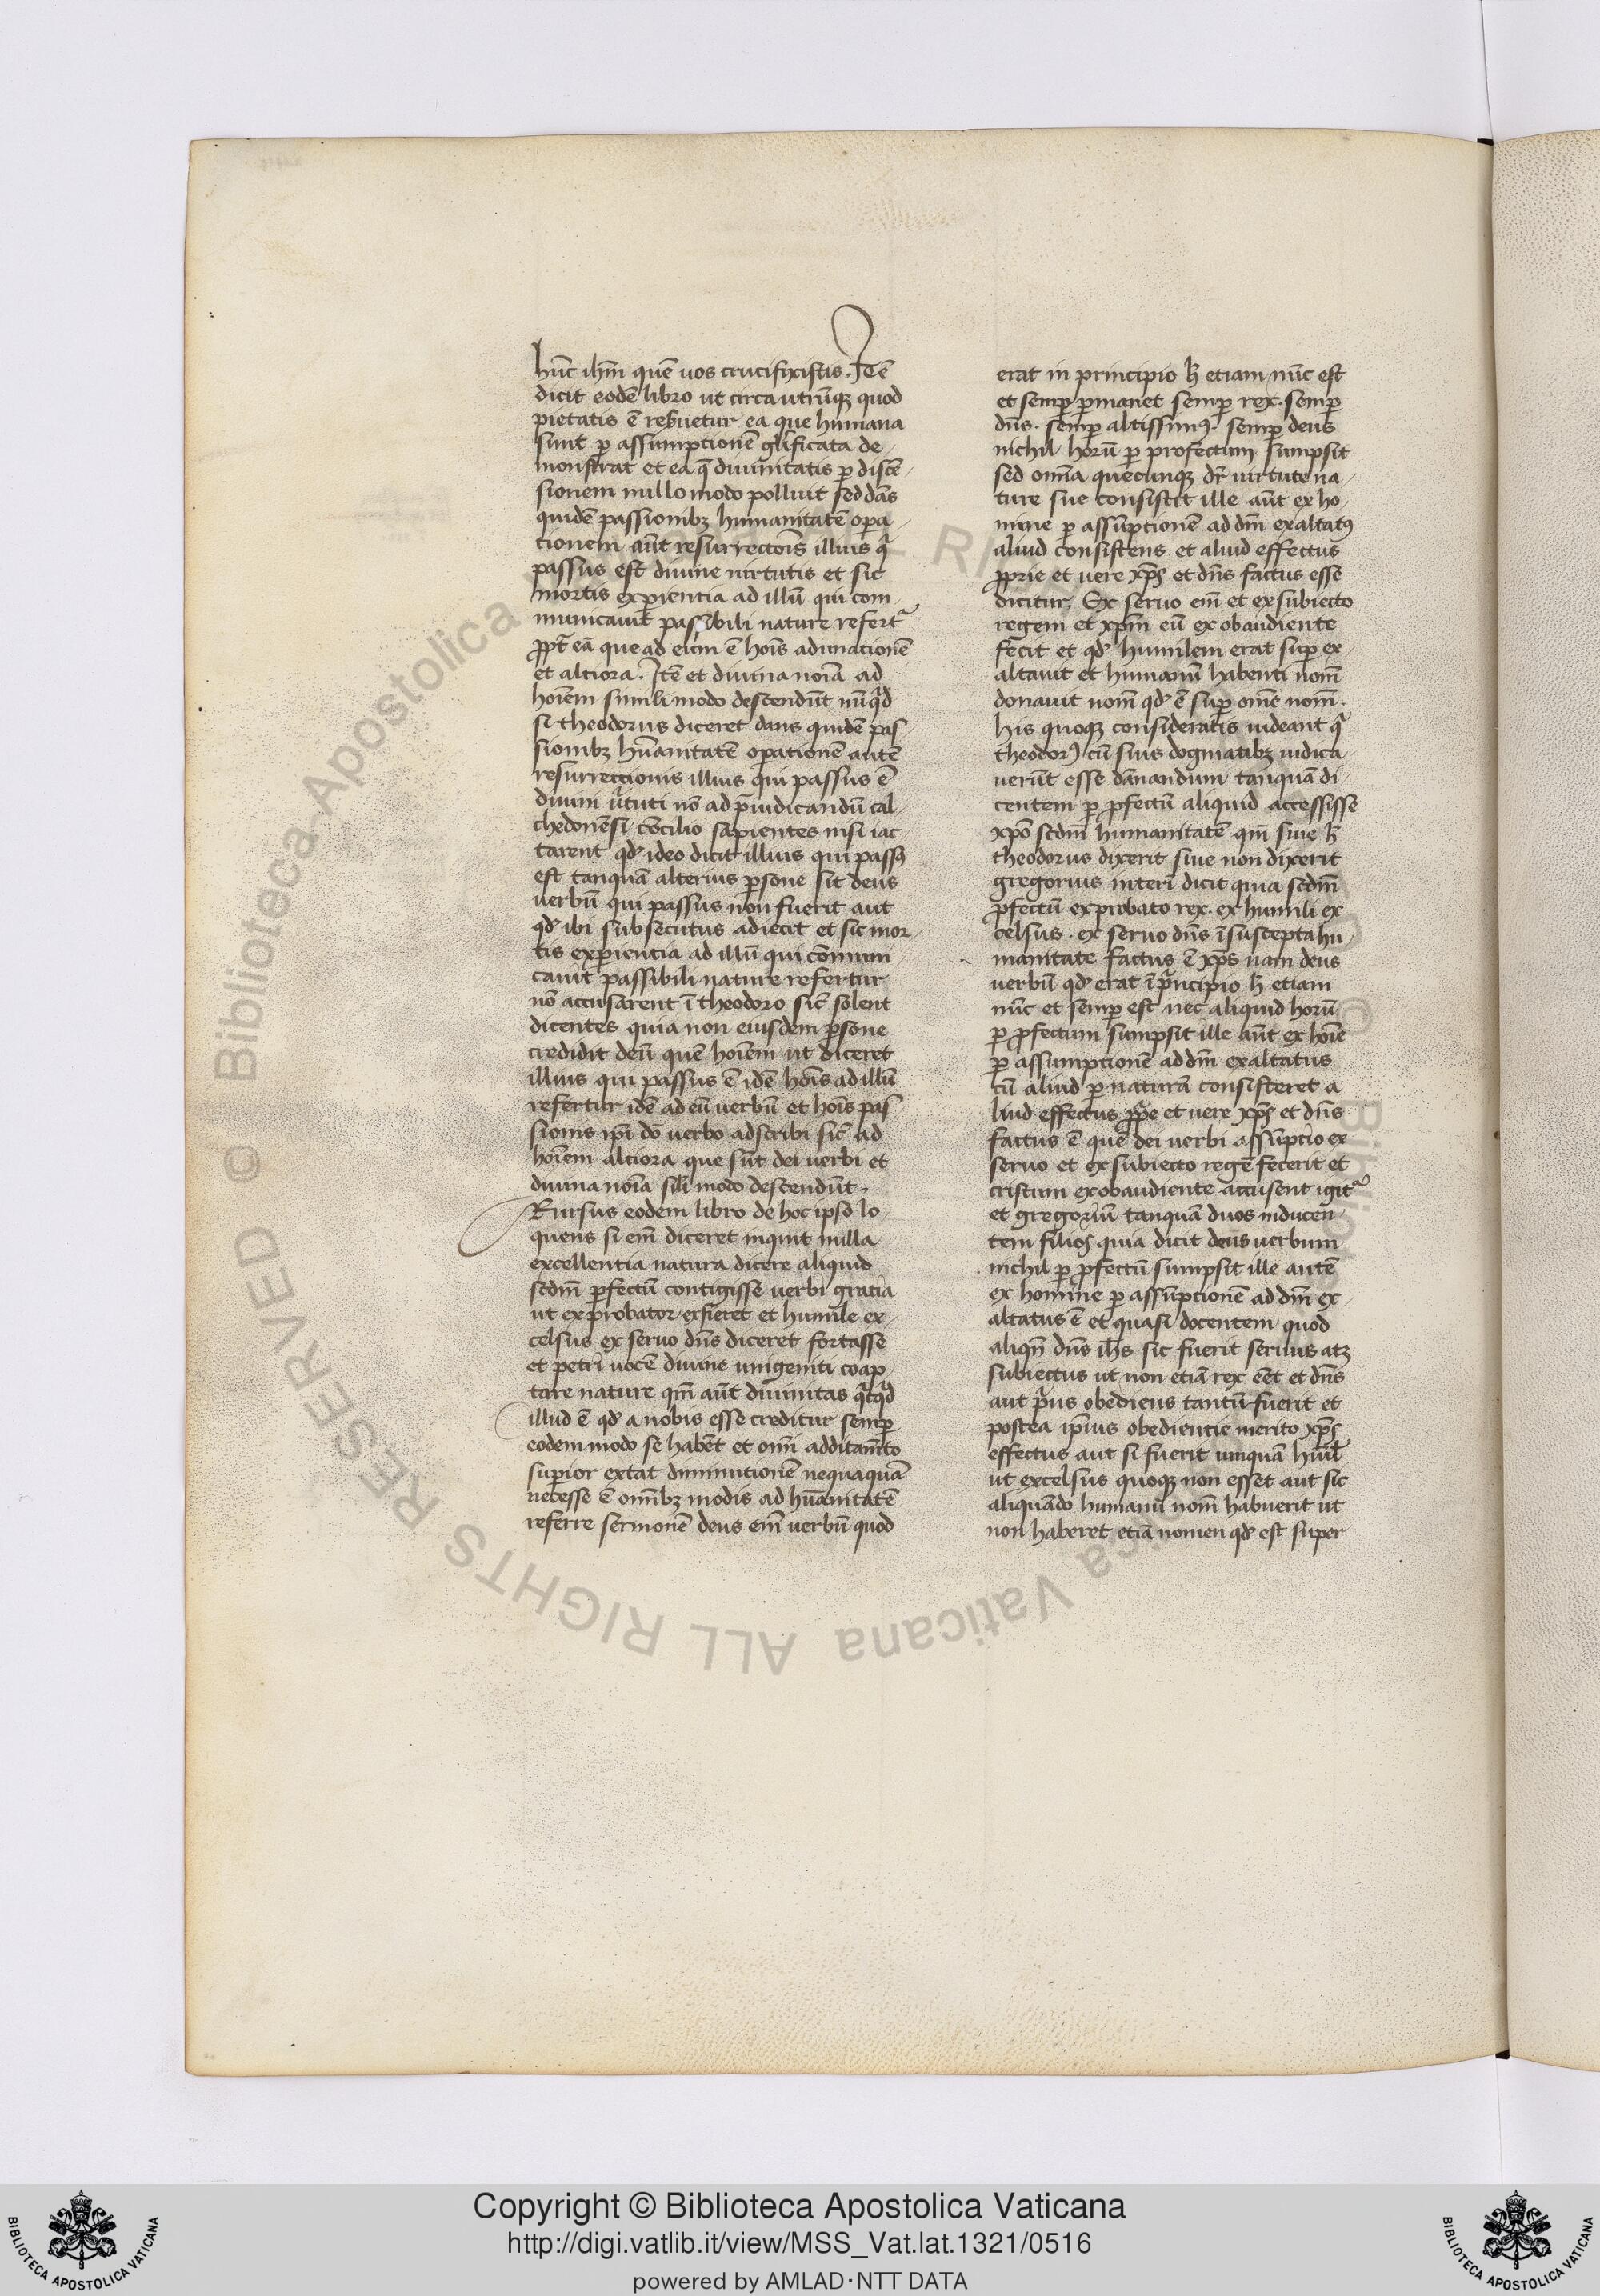 hūc ihm̄ quē uos crucifixistis. Itē
dicit eodē libro ut circa utrūqꝫ quod
pietatis ē reẜuetur ea que humana
sunt ꝑ assumptionē gl̄ificata de-
monstrat et ea q̄ diuinitatis ꝑ discē-
sionem nullo modo polluit sed dās
quidē passionibꝫ humanitatē oꝑa-
tionem aūt resurrectōis illius qͥ
passus est diuine uirtutis et sic
mortis exꝑientia ad illū qui com-
municauit passibili nature refertᷣ
ꝓpt̄ eā que ad eum ē hoīs adunacionē
et alciora. Itē et diuina noīa ad
hoīem simili modo descendūt nūqͥd
si theodorus diceret dans quidē pas-
sionibꝫ hūanitatē oꝑationē autē
resurrectionis illius qui passus ē
diuini ūtuti nō ad p̄iudicandū cal-
chedonēsi cōcilio sapientes nisi iac-
tarent qđ ideo dicit illius qui passꝰ
est tanquā alterius ꝑsone sit deus
uerbū qui passus non fuerit aut
qđ ibi subsecutus adiecit et sic mor-
tis exꝑientia ad illū qui cōmuni-
cauit passibili nature refertur
nō accusarent ī theodoro sic̄ solent
dicentes quia non eiusdem ꝑsone
credidit deū quē hoīem ut diceret
illius qui passus ē idē hoīs ad illū
refertur idē ad eū uerbū et hoīs pas-
sionis ip̄i dō uerbo adscribi sic̄ ad
hoīem alciora que sūt dei uerbi et
diuina noīa sil̄i modo descendūt.
Rursus eodem libro de hoc ipso lo-
quens si em̄ diceret inquit nulla
excellentia natura dicere aliquid
scdm̄ ꝓfectū contigisse uerbi gratia
ut ex probator ex fieret et humile ex-
celsus ex seruo dn̄s diceret fortasse
et petri uocē diuine unigeniti coap-
tare nature qm̄ aūt diuinitas qͥcqͥd
illud ē qđ a nobis esse creditur semꝑ
eodem modo se habēt et om̄i additamēto
suꝑior extat diminutionē nequaquā
necesse ē om̄ibꝫ modis ad hūanitatē
referre sermonē deus em̄ uerbū quod
erat in principio h̄ etiam nūc est
et semꝑ ꝑmanet semꝑ rex. semꝑ
dn̄s. semꝑ altissimꝰ. semꝑ deus
nichil horū ꝑ profectum sumpsit
sed omīa quecunqꝫ dr̄ uirtute na-
ture sue consistit ille aūt ex ho-
mine ꝑ assūptionē ad dm̄ exaltatꝰ
aliud consistens et aliud effectus
ꝓprie et uere xp̄s et dn̄s factus esse
dicitur. Ex seruo em̄ et ex subiecto
regem et xp̄m eū ex obaudiente
fecit et qđ humilem erat suꝑ ex-
altauit et humanū habenti nom̄
donauit nom̄ qđ ē suꝑ omē nom̄.
his quoqꝫ consideratis uideant qͥ
theodorꝰ cū suis dogmatibꝫ iudica-
uerūt esse dānandum tanquā di-
centem ꝑ ꝓfectū aliquid accessisse
xp̄o scdm̄ humanitatē qm̄ siue h̄
theodorus dixerit siue non dixerit
gregorius interī dicit quia scdm̄
ꝓfectū ex probato rex. ex humili ex-
celsus. ex seruo dn̄s ī suscepta hu-
manitate factus ē xp̄s nam deus
uerbū qđ erat ī pͥncipio h̄ etiam
nūc et semꝑ est nec aliquid horū
ꝑ ꝓfectum sumpsit ille aūt ex hoīe
ꝑ assumptionē ad dm̄ exaltatus
cū aliud ꝑ naturā consisteret a-
liud effectus ꝓpͥe et uere xp̄s et dn̄s
factus ē quē dei uerbi assūptio ex
seruo et ex subiecto regē fecerit et
cristum ex obaudiente accusent igitᷣ
et gregoriū tanquā duos inducen-
tem filios quia dicit deus uerbum
nichil ꝑ ꝓfectū sumpsit ille autē
ex homine ꝑ assūptionē ad dm̄ ex-
altatus ē et quasi docentem quod
aliqn̄ dn̄s ih̄s sic fuerit seruus atqꝫ
subiectus ut non etiā rex eēt et dn̄s
aut pͥus obediens tantū fuerit et
postea ip̄ius obedientie merito xp̄s
effectus aut si fuerit unquā huīl̄
ut excelsus quoqꝫ non esset aut sic
aliquādo humanū nom̄ habuerit ut
non haberet etiā nomen qđ est super
Copyright © Biblioteca Apostolica Vaticana
http://digi.vatlib.it/view/MSS_Vat.lat.1321/0516
powered by AMLAD·NTT DATA
BIBLIOTECA APOSTOLICA VATICANA
BIBLIOTECA APOSTOLICA VATICANA
© Biblioteca Apostolica Vaticana ALL RIGHTS RESERVED